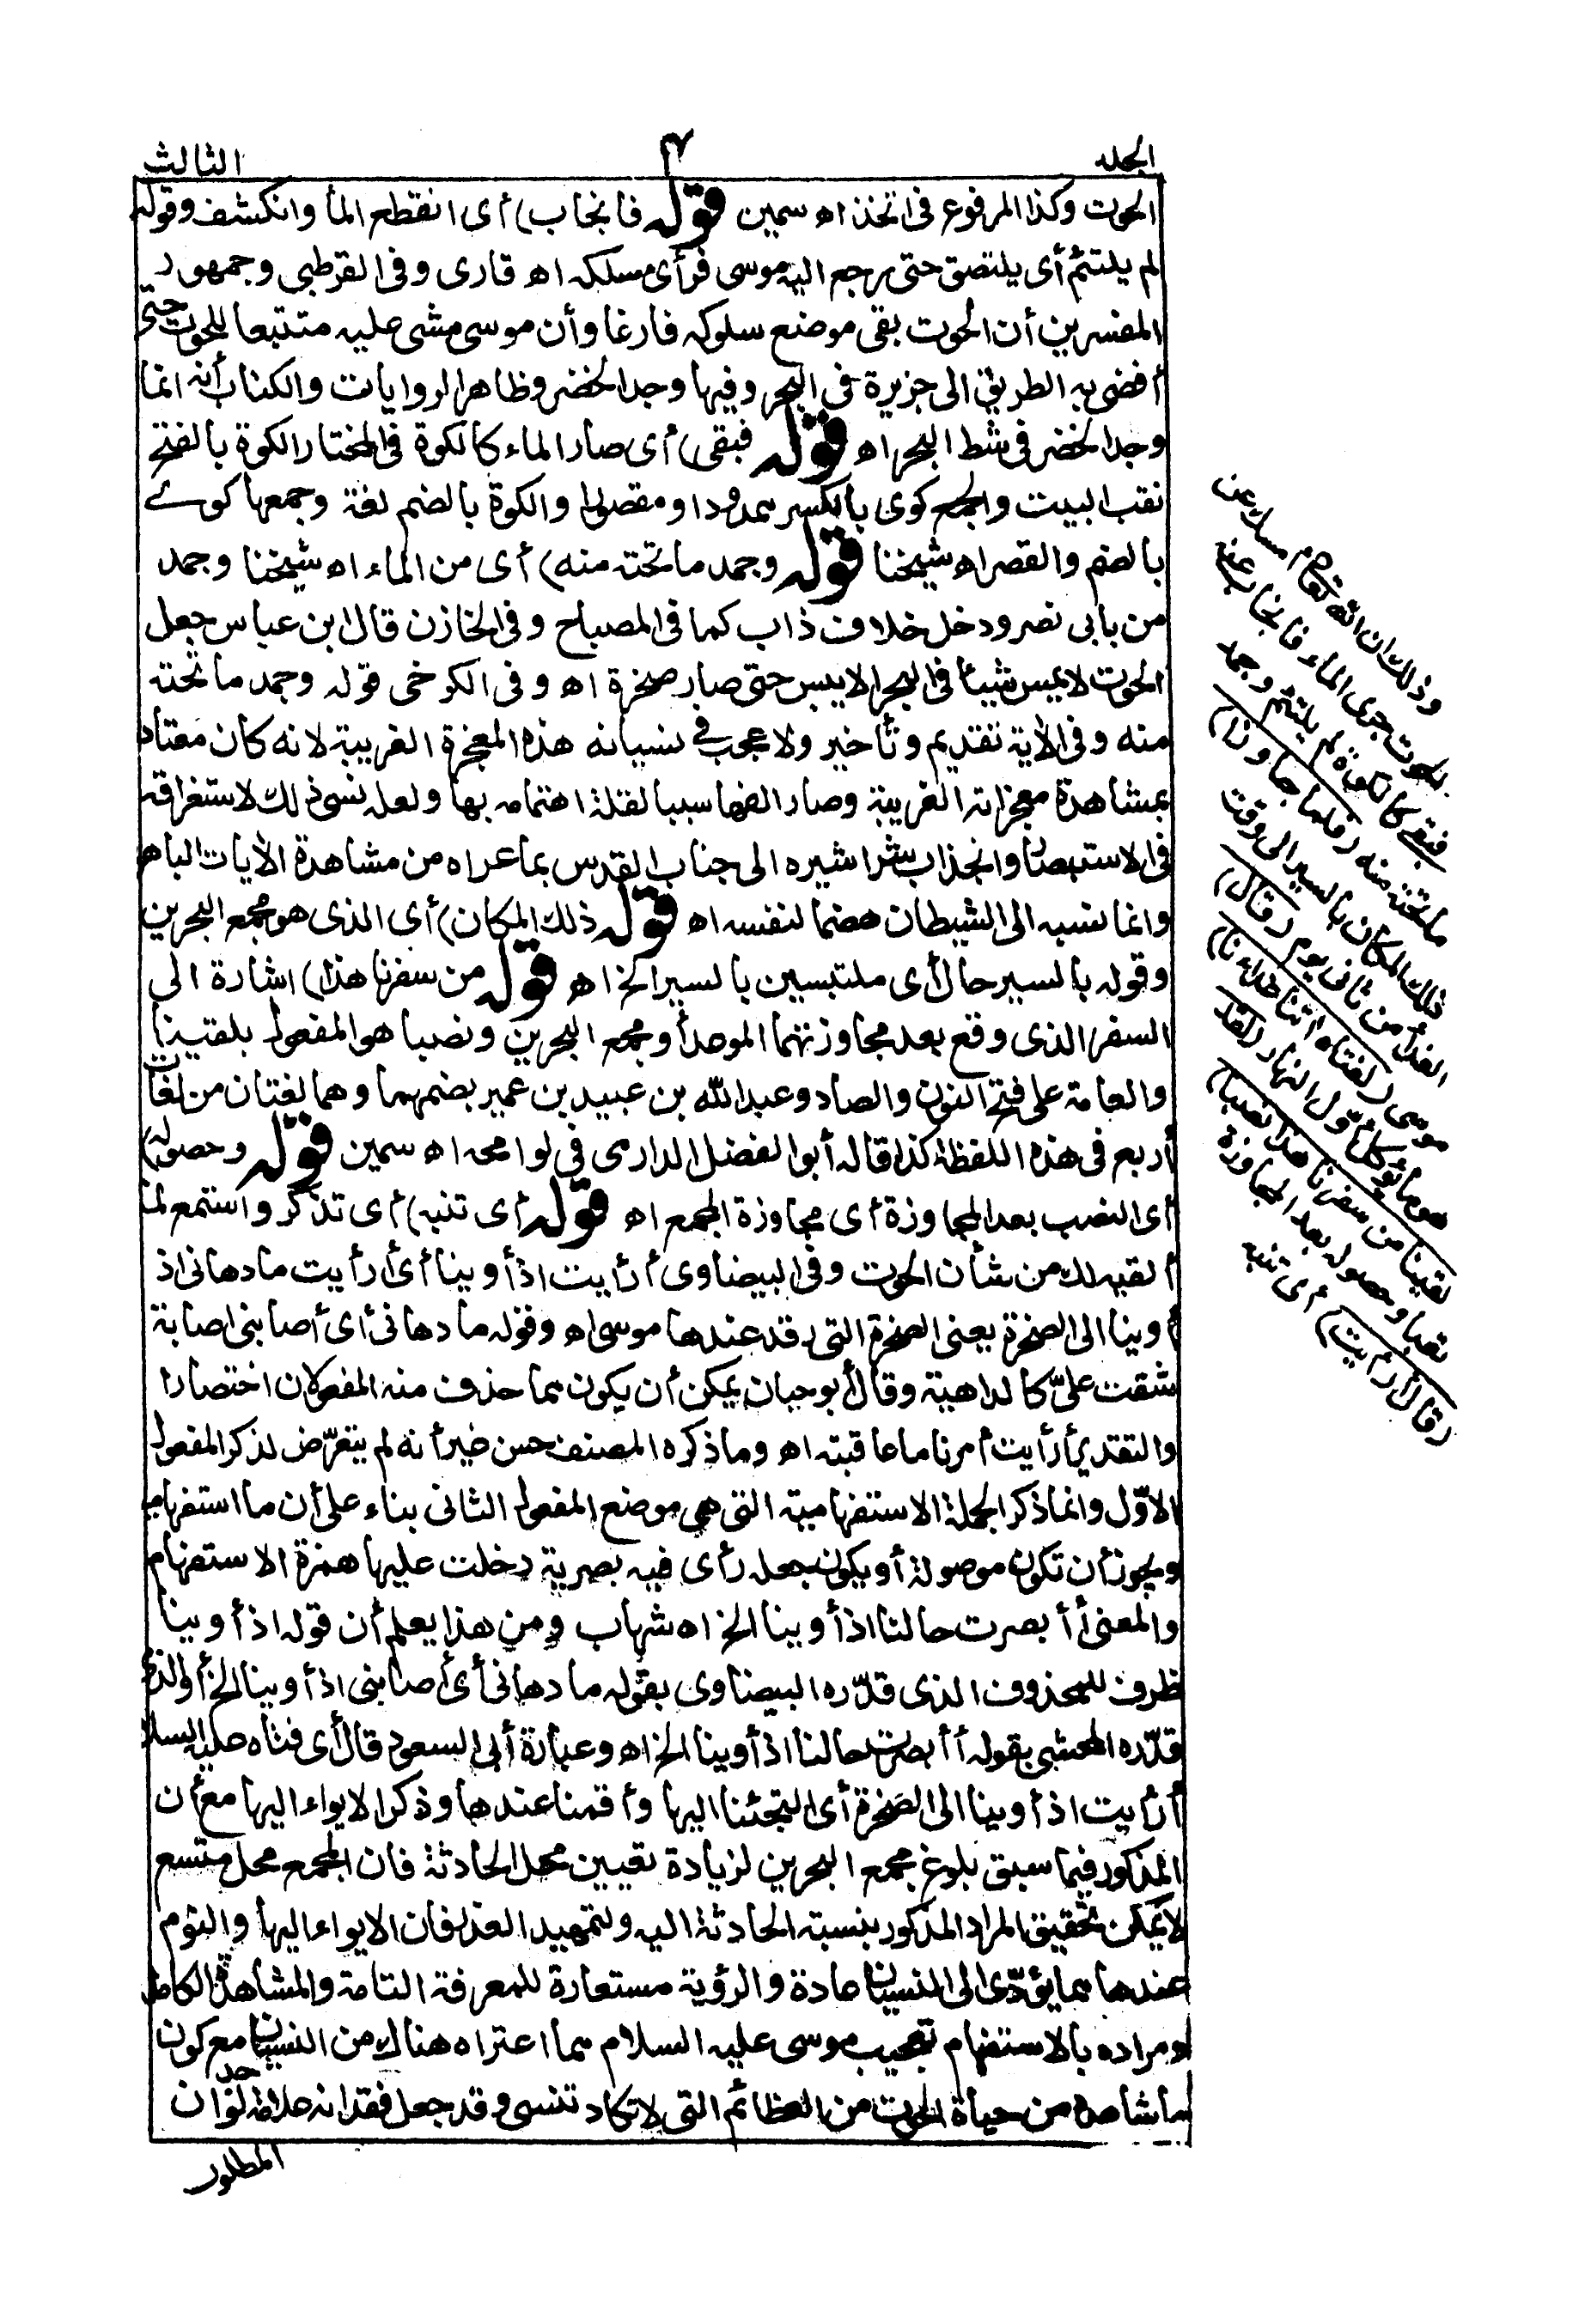 الجلد
٧
الثالث
الحوت وكذا المرفوع فى اتخذ اه سمين قوله فانجاب) أى انقطع الماء وانكشف وقوله
لم يلتئم أى يلتصق حتى رجع اليه موسى فرأى مسلكه اه قارى وفى القرطبى وجمهور
المفسرين أن الحوت بقى موضع سلوكه فارغا وأن موسى مشى عليه متتبعا للحوت حتى
أفضى به الطريق الى جزيرة فى البحر وفيها وجد الخضر وظاهر الروايات والكتاب أنه انما
وجد الخضر فى شط البحر اه قوله فبقى) أى صار الماء كالكوة فى المختار الكوة بالفتح
نقب البيت والجمع كوى بالكسر ممدودا ومقصورا والكوة بالضم لغة وجمعها كوى
بالضم والقصر اه شيخنا قوله وجمد ما تحته منه) أى من الماء اه شيخنا وجمد
من بابى نصر ودخل خلاف ذاب كما فى المصباح وفى الخازن قال ابن عباس جعل
الحوت لا يمس شيئا فى البحر الا يبس حتى صار صخرة اه وفى الكرخى قوله وجمد ما تحته
منه وفى الآية تقديم وتأخير ولا عجب فى نسيانه هذه المعجزة الغريبة لانه كان معتاد
بمشاهدة معجزاته الغريبة وصار الفها سببا لقلة اهتمامه بها ولعله نسى ذلك لاستغراقه
فى الاستبصار وانجذاب شراشيره الى جناب القدس بما عراه من مشاهدة الآيات الباهر
وانما نسبه الى الشيطان هضما لنفسه اه قوله ذلك المكان) أى الذى هو مجمع البحرين
وقوله بالسير حال أى ملتبسين بالسير الخ اه قوله من سفرنا هذا) اشارة الى
السفر الذى وقع بعد مجاوزتهما الموعد أو مجمع البحرين ونصبا هو المفعول بلقينا
والعامة على فتح النون والصاد وعبد الله بن عبيد بن عمير بضمهما وهما لغتان من لغات
أربع فى هذه اللفظة كذا قاله أبو الفضل الدارى فى لوامحه اه سمين قوله وحصوله)
أى النصب بعد المجاوزة أى مجاوزة المجمع اه قوله أى تنبه) أى تذكر واستمع لما
ألقيه لك من شأن الحوت وفى البيضاوى أرأيت اذ أوينا أى أرأيت ما دهانى اذ
أوينا الى الصخرة يعنى الصخرة التى رقد عندها موسى اه وقوله ما دهانى أى أصابنى اصابة
شقت علىّ كالداهية وقال أبو حيان يمكن أن يكون مما حذف منه المفعولان اختصارا
والتقدير أرأيت أمرنا ما عاقبته اه وما ذكره المصنف حسن غير أنه لم يتعرّض لذكر المفعول
الاوّل وانما ذكر الجملة الاستفهامية التى هى موضع المفعول الثانى بناء على أن ما استفهامية
ويجوز أن تكون موصولة أو يكون جعل رأى فيه بصرية دخلت عليها همزة الاستفهام
والمعنى أأبصرت حالنا اذ أوينا الخ اه شهاب ومن هذا يعلم أن قوله اذ أوينا
ظرف للمحذوف الذى قدّره البيضاوى بقوله ما دهانى أى أصابنى اذ أوينا الخ أو الذى
قدّره المحشى بقوله أأبصرت حالنا اذ أوينا الخ اه وعبارة أبى السعود قال أى فتاه عليه السلا
أرأيت اذ أوينا الى الصخرة أى التجئنا اليها وأقمنا عندها وذكر الايواء اليها مع أن
المذكور فيما سبق بلوغ مجمع البحرين لزيادة تعيين محل الحادثة فان المجمع محل متسع
لا يمكن تحقيق المراد المذكور بنسبة الحادثة اليه ولتمهيد العذر فان الايواء اليها والنوم
عندها مما يؤدّى الى النسيان عادة والرؤية مستعارة للمعرفة التامة والمشاهدة الكامل
ومراده بالاستفهام تعجيب موسى عليه السلام مما اعتراه هناك من النسيان مع كون
ما شاهده من حياة الحوت من العظائم التى لا تكاد تنسى وقد جعل فقدانه علامة لوجدان
المطلوب
وذلك ان الله تعالى أمسك عن
الحوت جرى الماء فانجاب عنه
فبقى كالكوة لم يلتئم وجمد
ما تحته منه (فلما جاوزا)
ذلك المكان بالسير الى وقت
الغداء من ثانى يوم (قال)
موسى (لفتاه اتنا غداءنا)
هو ما يؤكل أوّل النهار (لقد
لقينا من سفرنا هذا نصبا)
تعبا وحصوله بعد المجاوزة
(قال أرأيت) أى تنبه